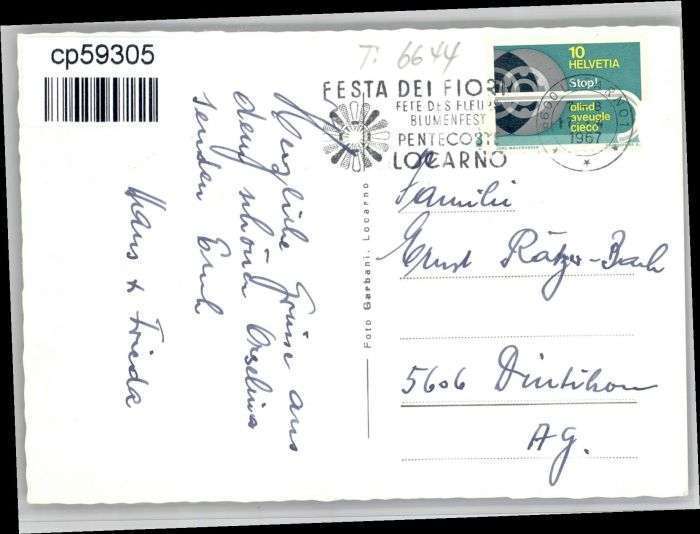 cp59305
T: 6644
10
HELVETIA
Stop!
blind
aveugle
cieco
FESTA DEI FIORI
FETE DES FLEURS
BLUMENFEST
PENTECOSTE
LOCARNO
1967
Herzliche Grüsse aus
dem schönen Orselina
senden Euch
Hans & Frieda
Foto Garbani, Locarno
Familie
Ernst Rätzer-Bach
5606 Dintikon
AG.